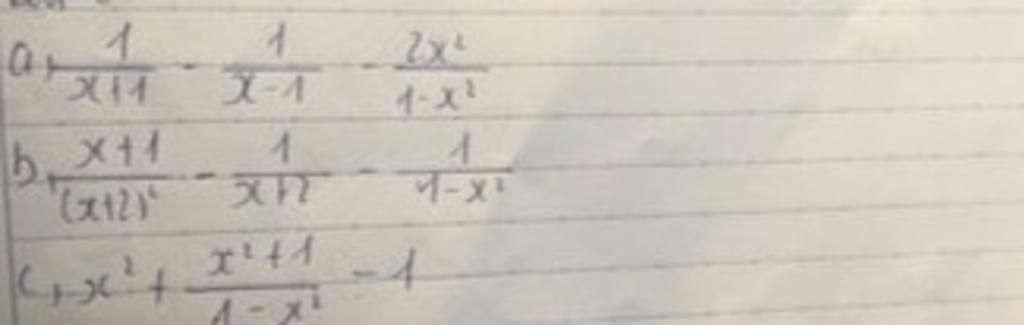 a, 1/(x+1) - 1/(x-1) - 2x²/(1-x²)
b, (x+1)/(x+2)² - 1/(x+2) - 1/(1-x²)
c, x² + (x²+1)/(1-x²) - 1